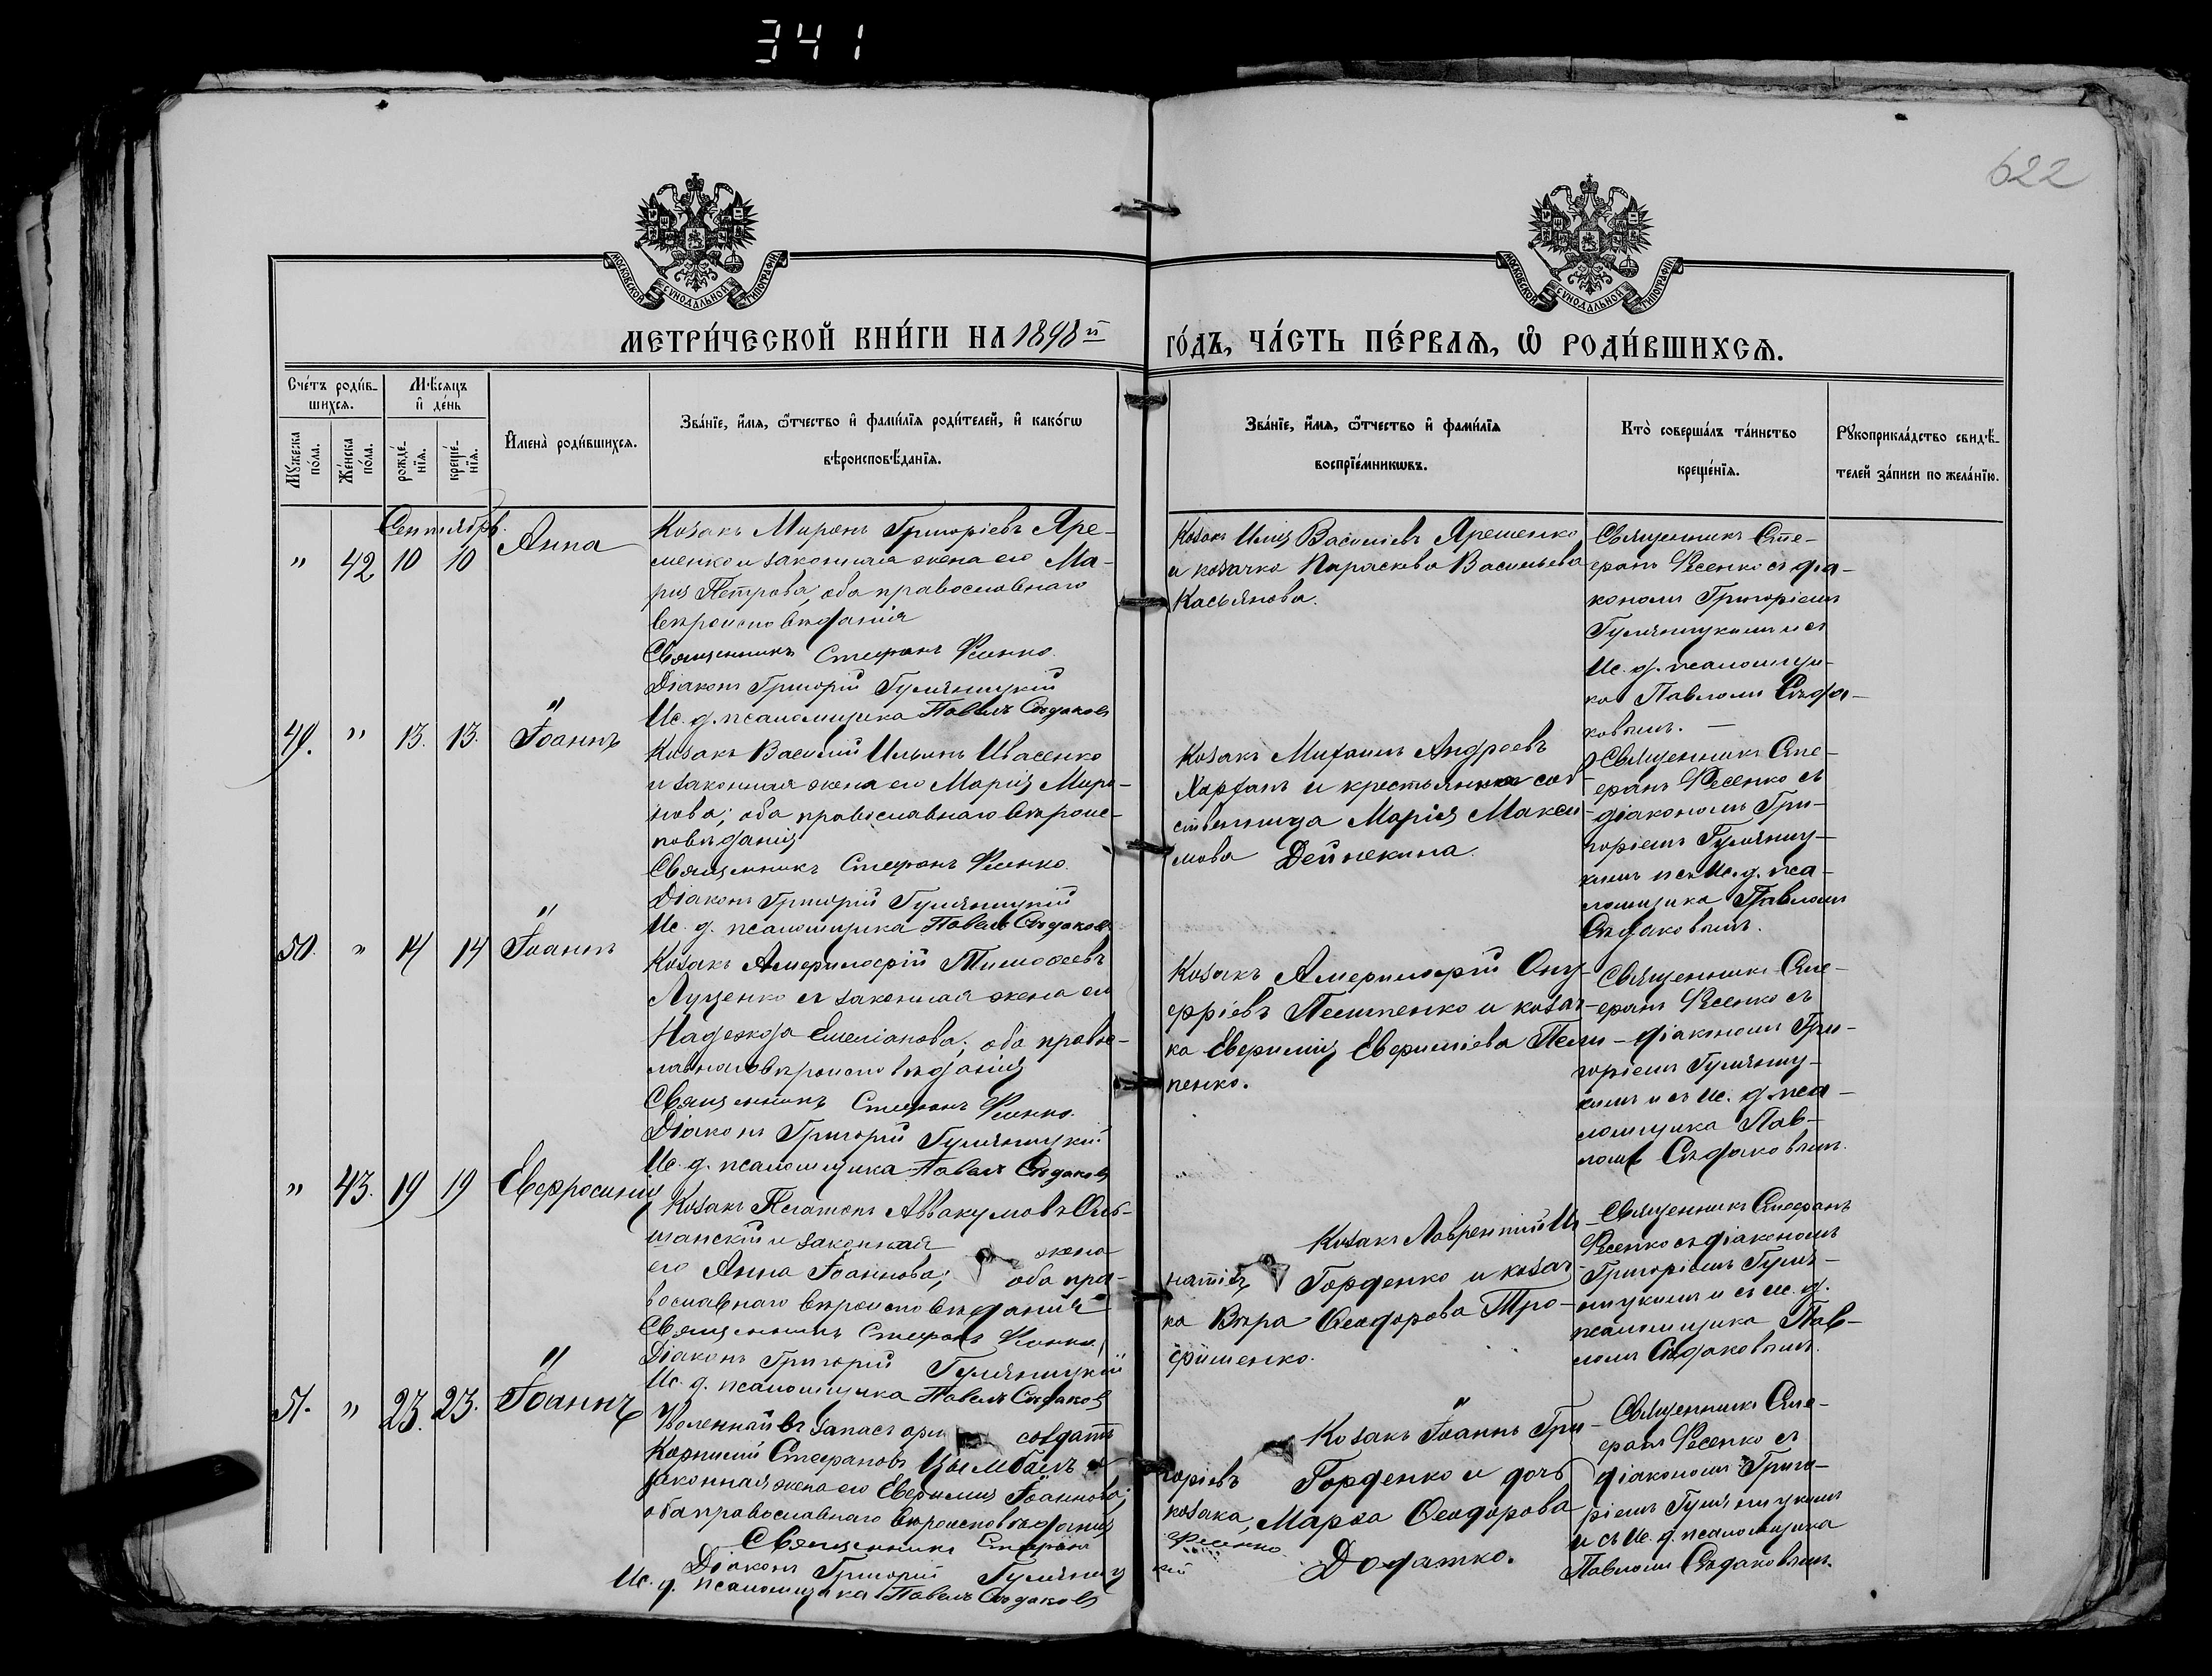 341
622
МОСКОВСКОЙ СѴНОДАЛЬНОЙ ТИПОГРАФІИ
МОСКОВСКОЙ СѴНОДАЛЬНОЙ ТИПОГРАФІИ
МЕТРИ́ЧЕСКОЙ КНИ́ГИ НА 1898й
ГО́ДЪ, ЧА́СТЬ ПЕ́РВАЯ, Ѡ҆ РОДИ́ВШИХСЯ.
Сче́тъ роди́в-
шихся.
Мꙋжеска по́ла.
Же́нска по́ла.
Мѣ́сяцъ
и҆ де́нь
рожде́-
нїя.
креще́-
нїя.
И҆мена̀ роди́вшихся.
Зва́нїе, и҆́мя, ѻ҆́тчество и҆ фами́лїя роди́телей, и҆ како́гѡ
вѣроисповѣ́данїя.
Зва́нїе, и҆́мя, ѻ҆́тчество и҆ фами́лїя
воспрїе́мникѡвъ.
Кто̀ соверша́лъ та́инство
креще́нїя.
Рꙋкоприкла́дство свидѣ́-
телей за́писи по жела́нїю.
Сентябрь.
" 42 10 10 Анна
Козакъ Миронъ Григоріевъ Яре-
менко и законная жена его Ма-
рія Петрова, оба православнаго
вѣроисповѣданія
Священникъ Стефанъ Фесенко.
Діаконъ Григорій Гуляницкій
Ис. д. псаломщика Павелъ Сѣдаковъ
Козакъ Илія Василіевъ Яременко
и козачка Параскева Васильева
Касьянова.
Священникъ Сте-
фанъ Фесенко съ діа-
кономъ Григоріемъ
Гуляницкимъ и съ
Ис. д. псаломщи-
ка Павломъ Сѣда-
ковымъ. —
49. " 13. 13. Іоаннъ
Козакъ Василій Ильинъ Ивасенко
и законная жена его Марія Миро-
нова; оба православнаго вѣроис-
повѣданія
Священникъ Стефанъ Фесенко.
Діаконъ Григорій Гуляницкій
Ис. д. псаломщика Павелъ Сѣдаковъ
Козакъ Михаилъ Андреевъ
Харханъ и крестьянка соб-
ственница Марія Макси-
мова Дейнекина.
Священникъ Сте-
фанъ Фесенко съ
діакономъ Гри-
горіемъ Гуляниц-
кимъ и съ Ис. д. пса-
ломщика Павломъ
Сѣдаковымъ.
50. " 14 14 Іоаннъ
Козакъ Амфилофій Тимоѳеевъ
Луценко и законная жена его
Надежда Емеліанова; оба правос-
лавнаго вѣроисповѣданія
Священникъ Стефанъ Фесенко.
Діаконъ Григорій Гуляницкій
Ис. д. псаломщика Павелъ Сѣдаковъ
Козакъ Амфилофій Ону-
фріевъ Пелипенко и козач-
ка Евфимія Евфиміева Пели-
пенко.
Священникъ Сте-
фанъ Фесенко съ
діакономъ Гри-
горіемъ Гуляниц-
кимъ и съ Ис. д. пса-
ломщика Пав-
ломъ Сѣдаковымъ.
" 43. 19 19 Евфросинія
Козакъ Платонъ Аввакумовъ
и законная жена
его Анна Іоаннова; оба пра-
вославнаго вѣроисповѣданія
Священникъ Стефанъ Фесенко
Діаконъ Григорій Гуляницкій
Ис. д. псаломщика Павелъ Сѣдаковъ
Козакъ Лаврентій Иг-
натіевъ Горденко и козач-
ка Вѣра Ѳеодорова Тро-
фименко.
Священникъ Стефанъ
Фесенко съ діакономъ
Григоріемъ Гуля-
ницкимъ и съ ис. д.
псаломщика Пав-
ломъ Сѣдаковымъ.
51. " 23. 23. Іоаннъ
Уволенный въ запасъ арміи солдатъ
Корнилій Стефановъ Цымбалъ и
законная жена его Евфимія Іоаннова;
оба православнаго вѣроисповѣданія
Священникъ Стефанъ Фесенко
Діаконъ Григорій Гуляницкій
Ис. д. псаломщика Павелъ Сѣдаковъ
Козакъ Іоаннъ Гри-
горіевъ Горденко и дочь
козака, Марѳа Ѳеодорова
Додатко.
Священникъ Сте-
фанъ Фесенко съ
діакономъ Григо-
ріемъ Гуляницкимъ
и съ Ис. д. псаломщика
Павломъ Сѣдаковымъ.